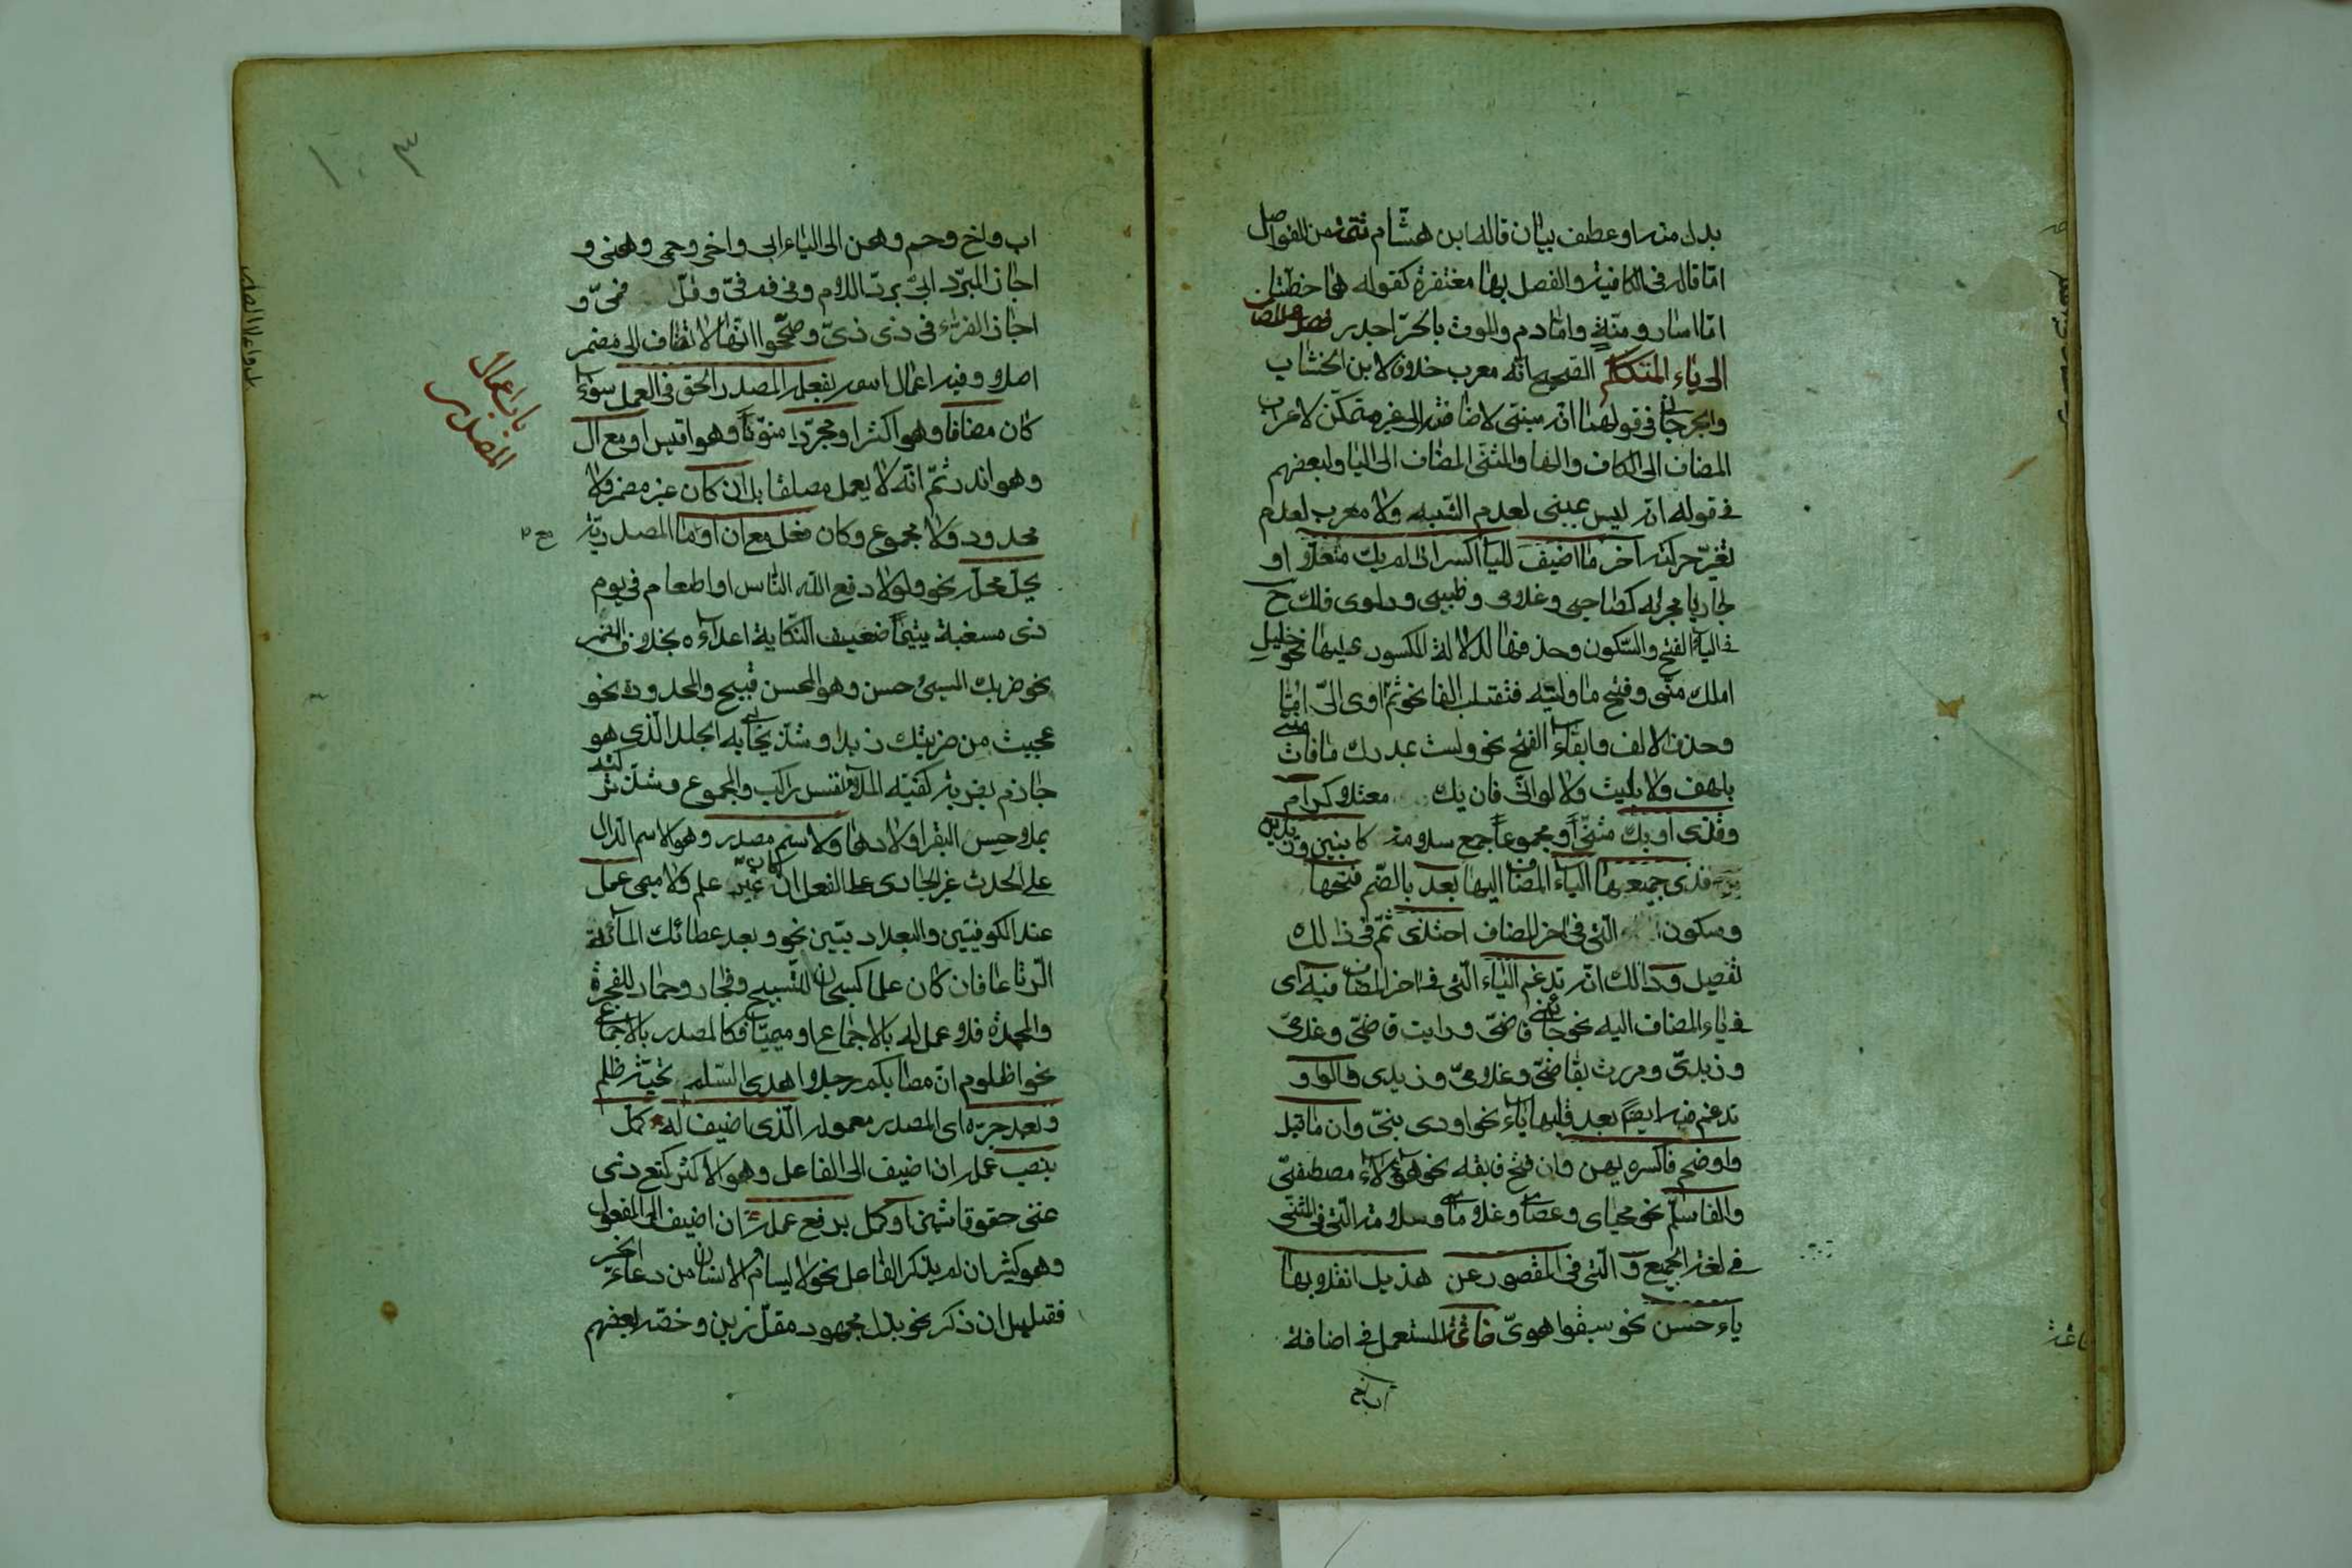 بدل منه او عطف بيان قاله ابن هشام تتمّة من الفواصل
امّا قاله فى الكافية والفصل بها مغتفرة كقوله هما خطتا
امّا اسار ومنّة وامّا دم والموت بالحرّ اجدر فصل فى المضاف
الى ياء المتكلم الصحيح انّه معرب خلافا لابن الخشاب
والجرجانى فى قولهما انّه مبنى لاضافته الى غير متمكّن لاعراب
المضاف الى الكاف والهاء والمثنى المضاف الى اليا ولبعضهم
فى قوله انّه ليس بمبنى لعدم الشبه ولا معرب لعدم
تغيّر حركته آخر ما اضيف لليا اكسر اذا لم يك معتلّا او
جاريا مجراه كصاحبى وغلامى وظبيى ودلوى فلك ح
فى الياء الفتح والسّكون وحذفها لدلالة الكسور عليها نحو خليل
املك منّى وفتح ما وليته فتقلب الفا نحو ثمّ اوى الىّ امّا
وحذف الالف وابقاء الفتح نحو ولست بمدرك ما فات منّى
بلهف ولا بليت ولا لوانّى فان يك معتلا كرام
وقذى او يك مثنّى او مجموعا جمع سلامة كابنين وزيدين
فذى جميعها الياء المضاف اليها بعد بالضّم فتحها
وسكون الّتى فى اخر المضاف احتذى ثمّ فى ذالك
تفصيل وذالك انّه تدغم الياء الّتى فى اخر المضاف فيه اى
فى ياء المضاف اليه نحو جائنى قاضىّ ورايت قاضىّ وغلامىّ
وزيدىّ ومررت بقاضىّ وغلامىّ وزيدى والواو
تدغم فيه ايضا بعد قلبها ياء نحو اودى بنىّ وان ما قبل
واو ضم فاكسره يهن وان فتح فابقه نحو هؤلاء مصطفىّ
والفا سلّم نحو محياى وعصاى وغلاماى وسلامة الّتى فى المثنى
فى لغة الجميع و الّتى فى المقصور عن هذيل انقلابها
ياء حسن نحو سبقوا هوىّ خاتمة المستعمل فى اضافة
اب واخ
اب واخ وحم وهن الى الياء ابى واخى وحمى وهنى و
اجاز المبرّد ابىّ بردّ اللام وفى فم فىّ وقلّ فمىّ و
اجاز الفراء فى ذى ذىّ وصحّحوا انّها لا تضاف الى مضمر
اصلا وفيه اعمال اسم بفعله المصدر الحق فى العمل سواء
باب اعمال
المصدر
كان مضافا وهو اكثر او مجرّدا منوّنا وهو اقيس او مع ال
وهو اندر ثمّ انّه لا يعمل مطلقا بل ان كان غير مضمر ولا
محدود ولا مجموع وكان فعل مع ان او ما المصدريّة
يحلّ محلّه نحو ولولا دفع اللّه النّاس او اطعام فى يوم
ذى مسغبة يتيما ضعيف النّكاية اعداءه بخلاف المضمر
نحو ضربك المسئ حسن وهو المحسن قبيح والمحدود نحو
عجبت من ضربتك زيدا وشذ يحابى به الجلد الّذى هو
جازم بضربة كفيّه الملا نفس راكب والمجموع وشذ تركته
بملاحس البقر اولادها ولاسم مصدر وهو الاسم الدال
على الحدث غير الجارى على الفعل ان كان غير علم ولا ميمى عمل
عند الكوفيّين والبغداديّين نحو وبعد عطائك المائة
الرّتاعا فان كان علما كسبحان للتّسبيح وفجار وحماد للفجرة
والمحمدة فلا عمل له بالاجماع او ميميّا فكالمصدر بالاجماع
نحو اظلوم انّ مصابكم رجلا اهدى السّلم تحيّة ظلم
وبعد جرّه اى المصدر معموله الّذى اضيف له كمّل
بنصب عمله ان اضيف الى الفاعل وهو الاكثر كمنع ذى
غنى حقوقا شين او كمّل برفع عمله ان اضيف الى المفعول
وهو كثير ان لم يذكر الفاعل نحو لا يسام الانسان من دعاء الخير
فقليل ان ذكر نحو بذل مجهود مقلّ زين وخصّه بعضهم